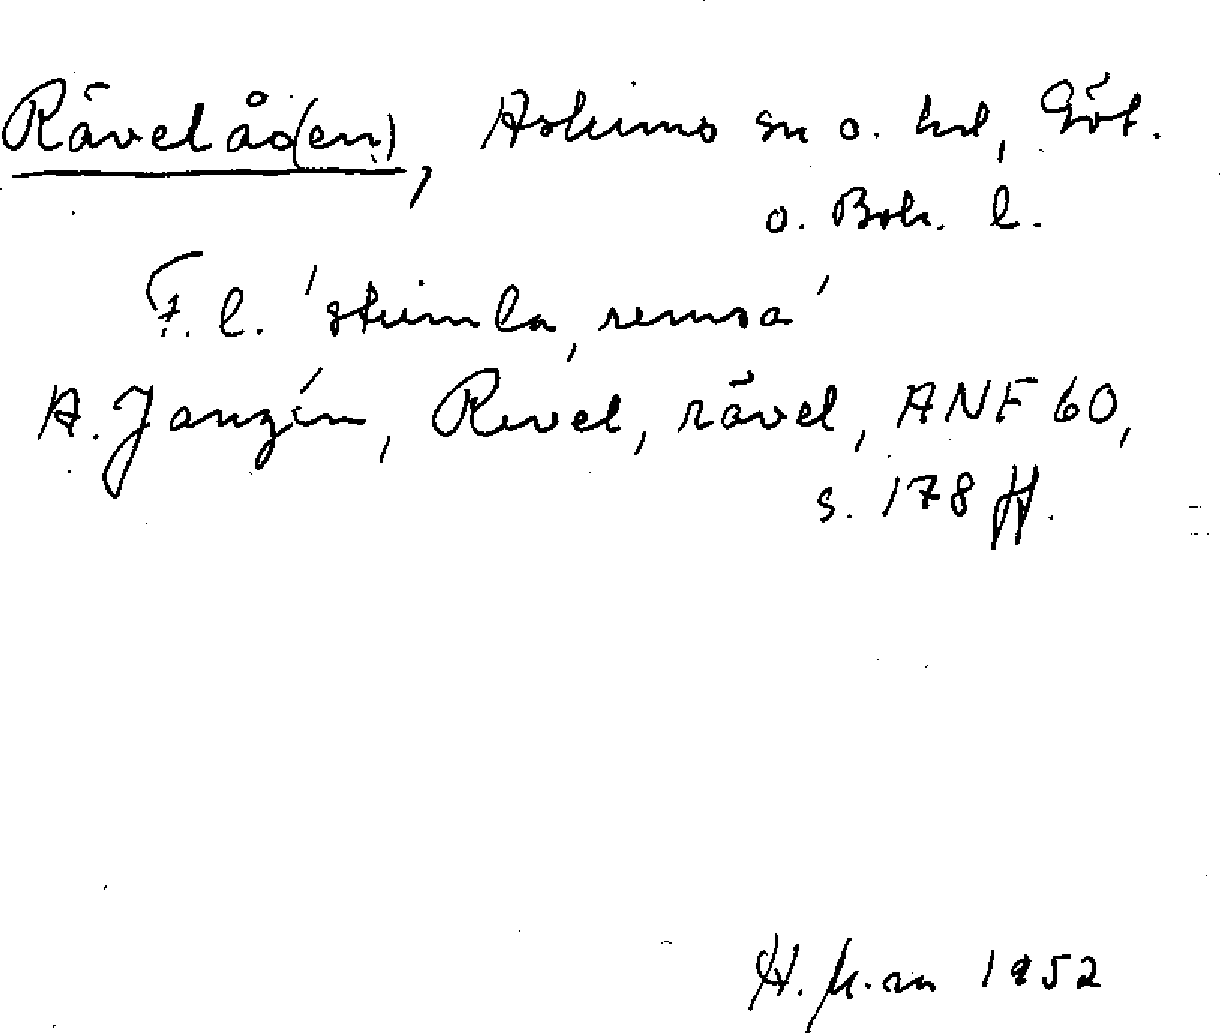 Rävelås(en), Askims sn o. hd, Göt.
o. Boh. l.
F.l. 'strimla, remsa'
A. Janzén, Revel, rävel, ANF 60,
s. 178 ff.
1952